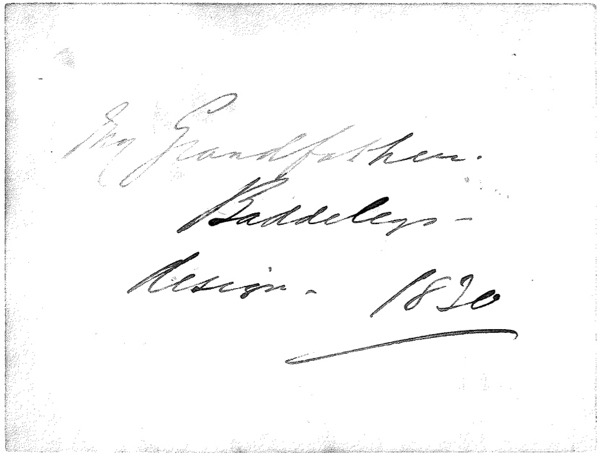 My Grandfather.
Baddeleys -
design - 1820